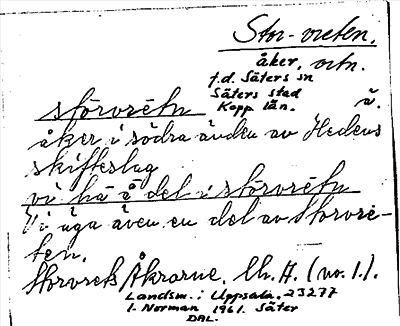 Stor-vreten.
åker, ortn.
f.d. Säters sn
Säters stad
Kopp. län.
störvrētn
åker i södra änden av Hedens
skifteslag
vi hā ē del i störvrētn
Vi äga även en del av Storvre-
ten.
Storvrets Åkrarne. Ch. A. (no. 1.).
Landsm. i Uppsala. 23277
I. Norman 1961. Säter
DAL.